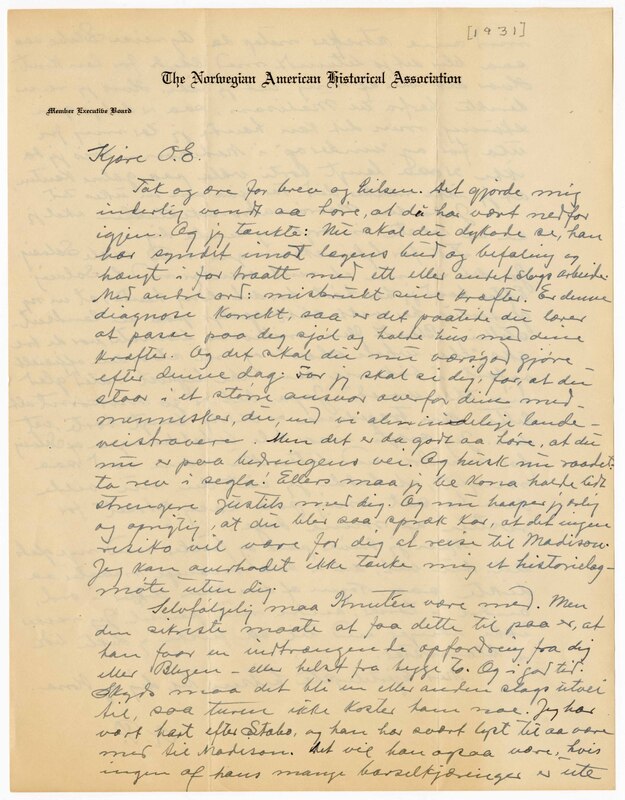 [1931]
The Norwegian American Historical Association
Member Executive Board
Kjære O.E.
Tak og ære for brev og hilsen. Det gjorde mig
inderlig vondt aa høre, at du har vært nedfor
igjen. Og jeg tænkte: Nu skal du dykode se, han
har syndit imot lægens bud og befaling og
hængt i for traatt med ett eller andet slags arbeide.
Med andre ord: misbrukt sine kræfter. Er denne
diagnose korrekt, saa er det paatide du lærer
at passe paa dig sjøl og holde hus med dine
kræfter. Og det skal du nu værsgod gjøre
efter denne dag. For jeg skal si dig, for, at du
staar i et større ansvar overfor dine med-
mennesker, du, end vi almindelige lande-
veistravere. Men det er da godt aa høre, at du
nu er paa bedringens vei. Og husk nu raadet:
ta rev i segla! Ellers maa jeg be Kona holde lidt
strengere justits med dig. Og nu haaper jeg ærlig
og oprigtig, at du blir saa spræk kar, at det ingen
risiko vil være for dig at reise til Madison.
Jeg kan overhodet ikke tænke mig et historielag-
møte uten dig.
Selvfølgelig maa Knuten være med. Men
den sikreste maate at faa dette til paa er, at
han faar en indtrængende opfordring fra dig
eller Blegen - eller helst fra begge to. Og i god tid.
Skyds maa det bli en eller anden slags utvei
til, saa turen ikke koster ham noe. Jeg har
vært hart efter Stabo, og han har svært lyst til aa være
med til Madison. Det vil han ogsaa være, hvis
ingen af hans mange barselkjæringer er ute